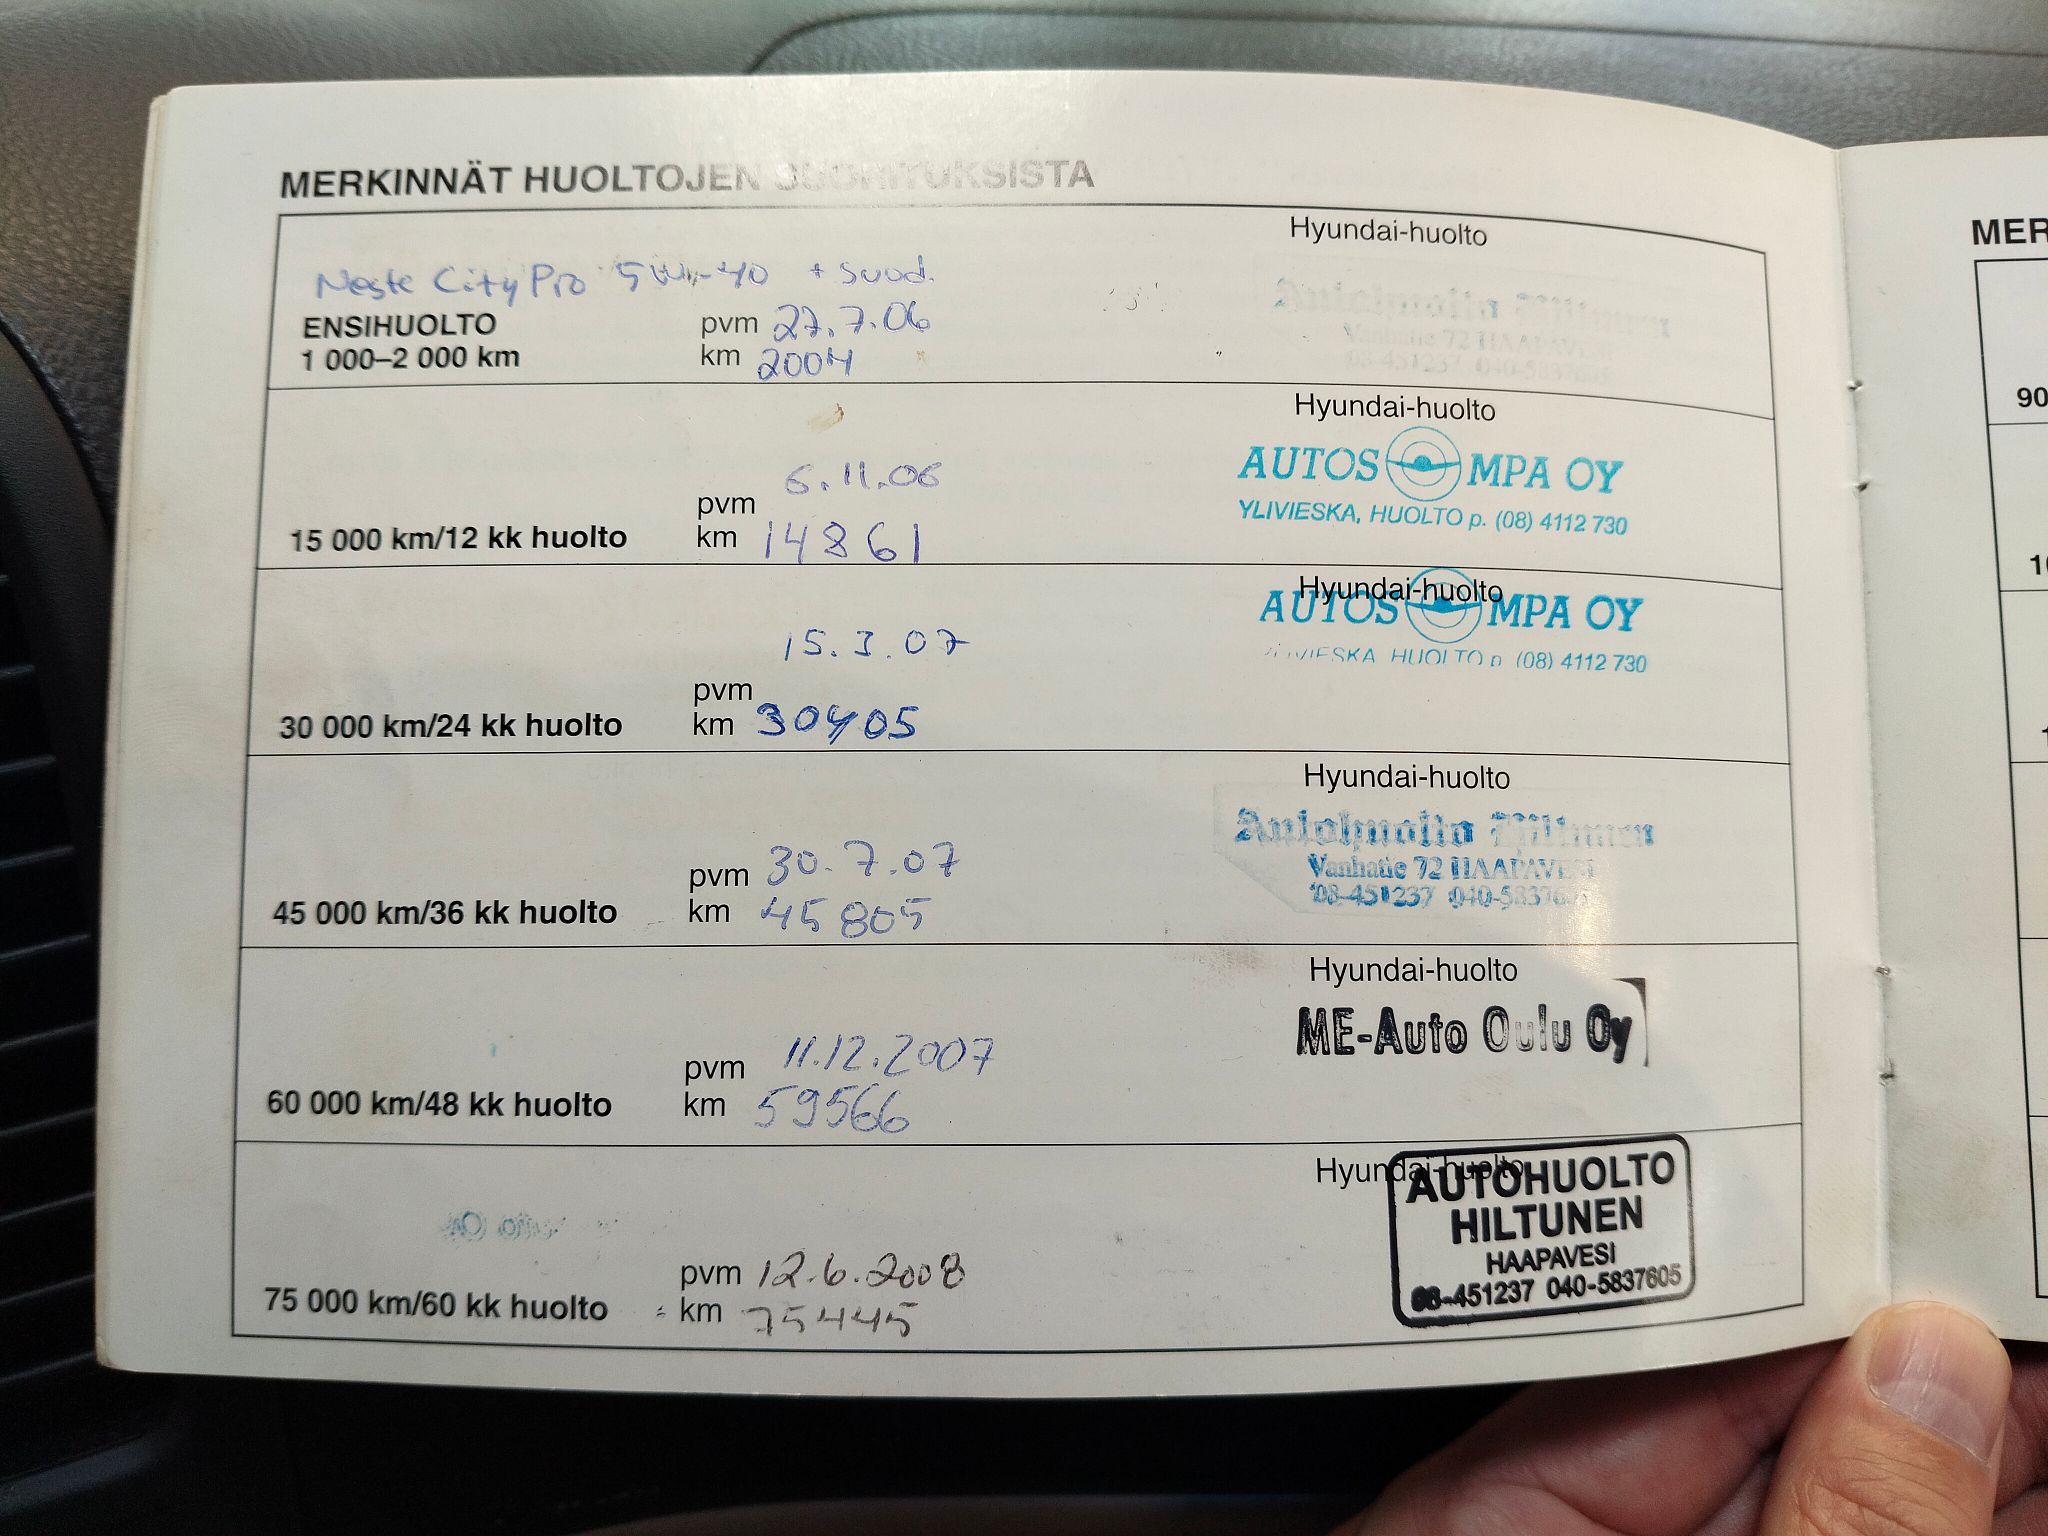 MERKINNÄT HUOLTOJEN SUORITUKSISTA
Hyundai-huolto
Neste City Pro 5W-40 + suod.
ENSIHUOLTO
1 000–2 000 km
pvm 27.7.06
km 2004
Autohuolto Hiltunen
Vanhatie 72 HAAPAVESI
08-451237 040-5837605
Hyundai-huolto
AUTOSOMPA OY
YLIVIESKA, HUOLTO p. (08) 4112 730
15 000 km/12 kk huolto
pvm 6.11.06
km 14861
Hyundai-huolto
AUTOSOMPA OY
YLIVIESKA, HUOLTO p. (08) 4112 730
30 000 km/24 kk huolto
pvm 15.3.07
km 30405
Hyundai-huolto
Autohuolto Hiltunen
Vanhatie 72 HAAPAVESI
08-451237 040-5837605
45 000 km/36 kk huolto
pvm 30.7.07
km 45805
Hyundai-huolto
ME-Auto Oulu Oy
60 000 km/48 kk huolto
pvm 11.12.2007
km 59566
Hyundai-huolto
AUTOHUOLTO
HILTUNEN
HAAPAVESI
08-451237 040-5837605
75 000 km/60 kk huolto
pvm 12.6.2008
km 75445
MER
90